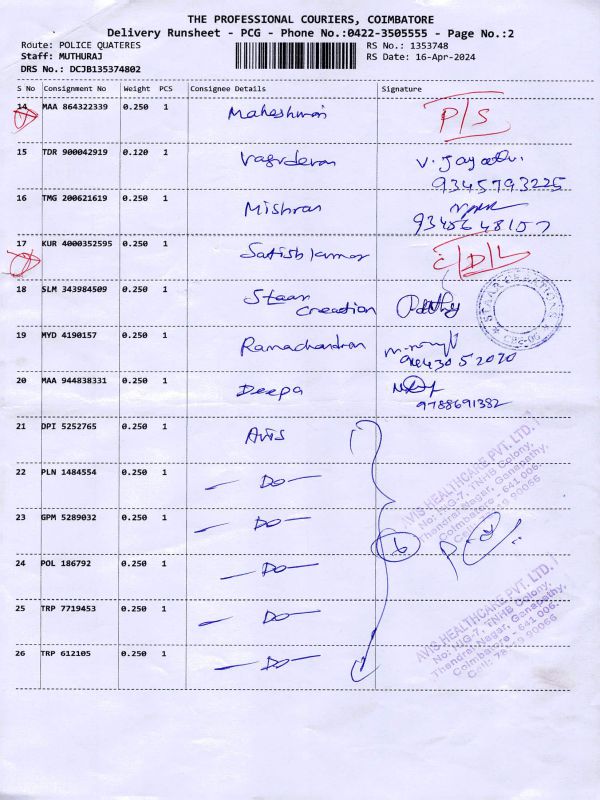 THE PROFESSIONAL COURIERS, COIMBATORE
Delivery Runsheet - PCG - Phone No.:0422-3505555 - Page No.:2
Route: POLICE QUATERES
Staff: MUTHURAJ
DRS No.: DCJB135374802
RS No.: 1353748
RS Date: 16-Apr-2024
S No Consignment No Weight PCS Consignee Details Signature
14 MAA 864322339 0.250 1 Maheshwari P/S
15 TDR 900042919 0.120 1 V. Jayathi.
9345793225
16 TMG 200621619 0.250 1 Mishran
9345648157
17 KUR 4000352595 0.250 1 Satish kumar C/D/L
18 SLM 343984509 0.250 1 Staan
Creation
19 MYD 4190157 0.250 1 Ramachandran
20 MAA 944838331 0.250 1 Deepa
9788691382
21 DPI 5252765 0.250 1 Avis
22 PLN 1484554 0.250 1 — Do —
23 GPM 5289032 0.250 1 — Do —
24 POL 186792 0.250 1 — Do —
25 TRP 7719453 0.250 1 — Do —
26 TRP 612105 0.250 1 — Do —
6
AVIS HEALTHCARE PVT. LTD.
No: HIG-7, TNHB Colony,
Thendral Nagar, Ganapathy,
Coimbatore - 641 006.
AVIS HEALTHCARE PVT. LTD.
No: HIG-7, TNHB Colony,
Thendral Nagar, Ganapathy,
Coimbatore - 641 006.